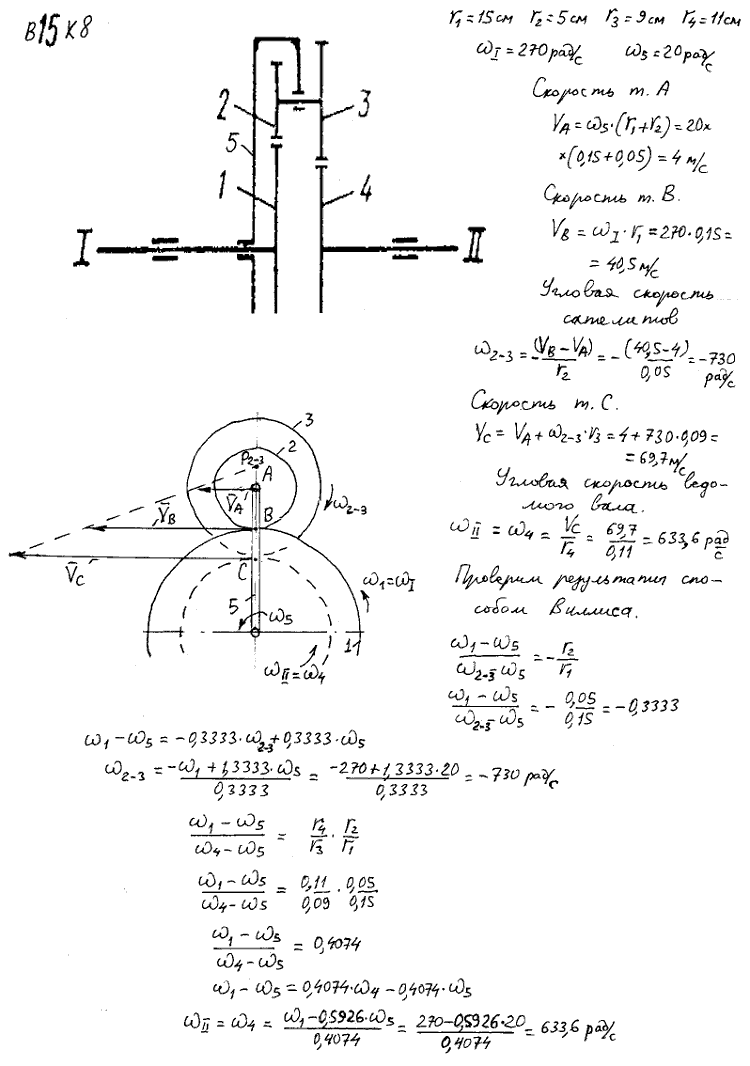 В15 К8
r₁=15см r₂=5см r₃=9см r₄=11см
ω_I=270 рад/с ω₅=20 рад/с
Скорость т. А
V_A=ω₅·(r₁+r₂)=20×
×(0,15+0,05)=4 м/с
Скорость т. В.
V_B=ω_I·r₁=270·0,15=
=40,5 м/с
Угловая скорость
сателитов
ω₂₋₃=-(V_B-V_A)/r₂=-(40,5-4)/0,05=-730 рад/с
Скорость т. С.
V_C=V_A+ω₂₋₃·r₃=4+730·0,09=
=69,7 м/с
Угловая скорость ведо-
мого вала.
ω_II=ω₄=V_C/r₄=69,7/0,11=633,6 рад/с
Проверим результаты спо-
собом Виллиса.
(ω₁-ω₅)/(ω₂₋₃-ω₅)=-r₂/r₁
(ω₁-ω₅)/(ω₂₋₃-ω₅)=-0,05/0,15=-0,3333
2
3
5
1
4
I
II
3
2
P₂₋₃
A
V̄_A
ω₂₋₃
V̄_B
B
V̄_C
C
ω₁=ω_I
5
ω₅
1
ω_II=ω₄
ω₁-ω₅=-0,3333·ω₂₋₃+0,3333·ω₅
ω₂₋₃=(-ω₁+1,3333·ω₅)/0,3333=(-270+1,3333·20)/0,3333=-730 рад/с
(ω₁-ω₅)/(ω₄-ω₅)=r₄/r₃·r₂/r₁
(ω₁-ω₅)/(ω₄-ω₅)=0,11/0,09·0,05/0,15
(ω₁-ω₅)/(ω₄-ω₅)=0,4074
ω₁-ω₅=0,4074·ω₄-0,4074·ω₅
ω_II=ω₄=(ω₁-0,5926·ω₅)/0,4074=(270-0,5926·20)/0,4074=633,6 рад/с